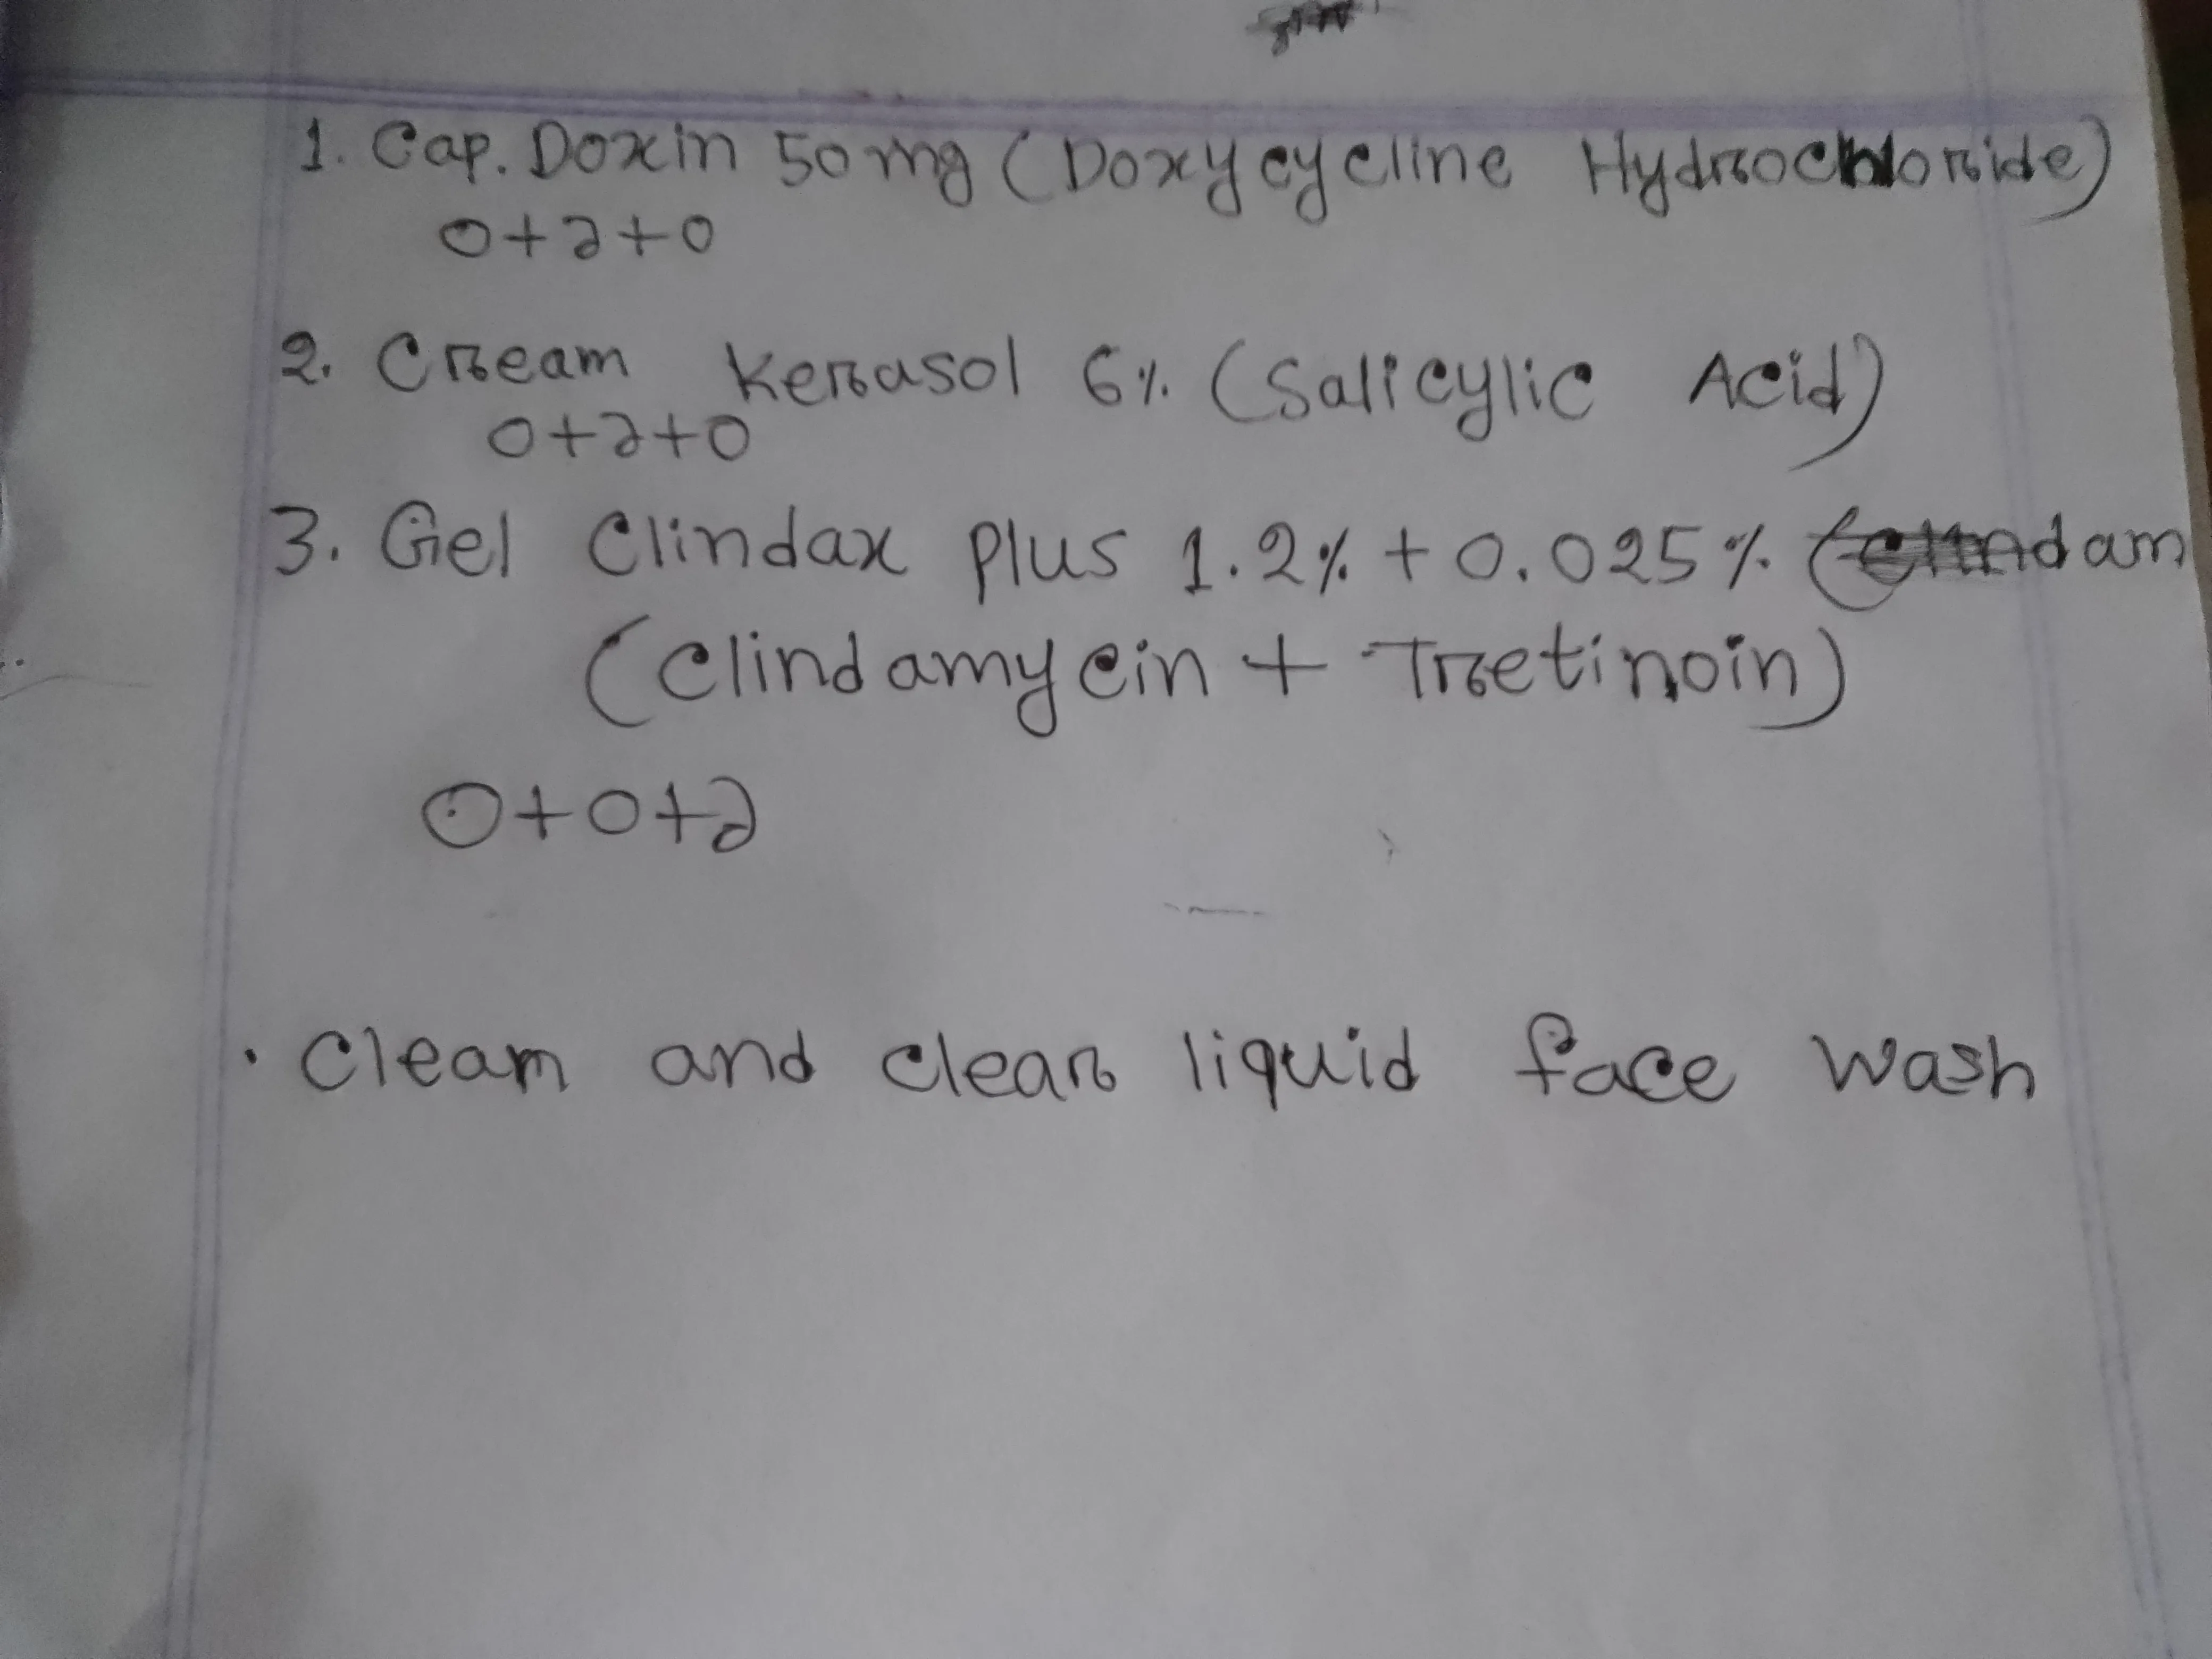 1. Cap. Doxin 50 mg (Doxycycline Hydrochloride)
0+১+0
2. Cream Kerasol 6% (Salicylic Acid)
0+১+0
3. Gel Clindax plus 1.2% + 0.025%
(Clindamycin + Tretinoin)
0+0+১
• Clean and clear liquid face wash